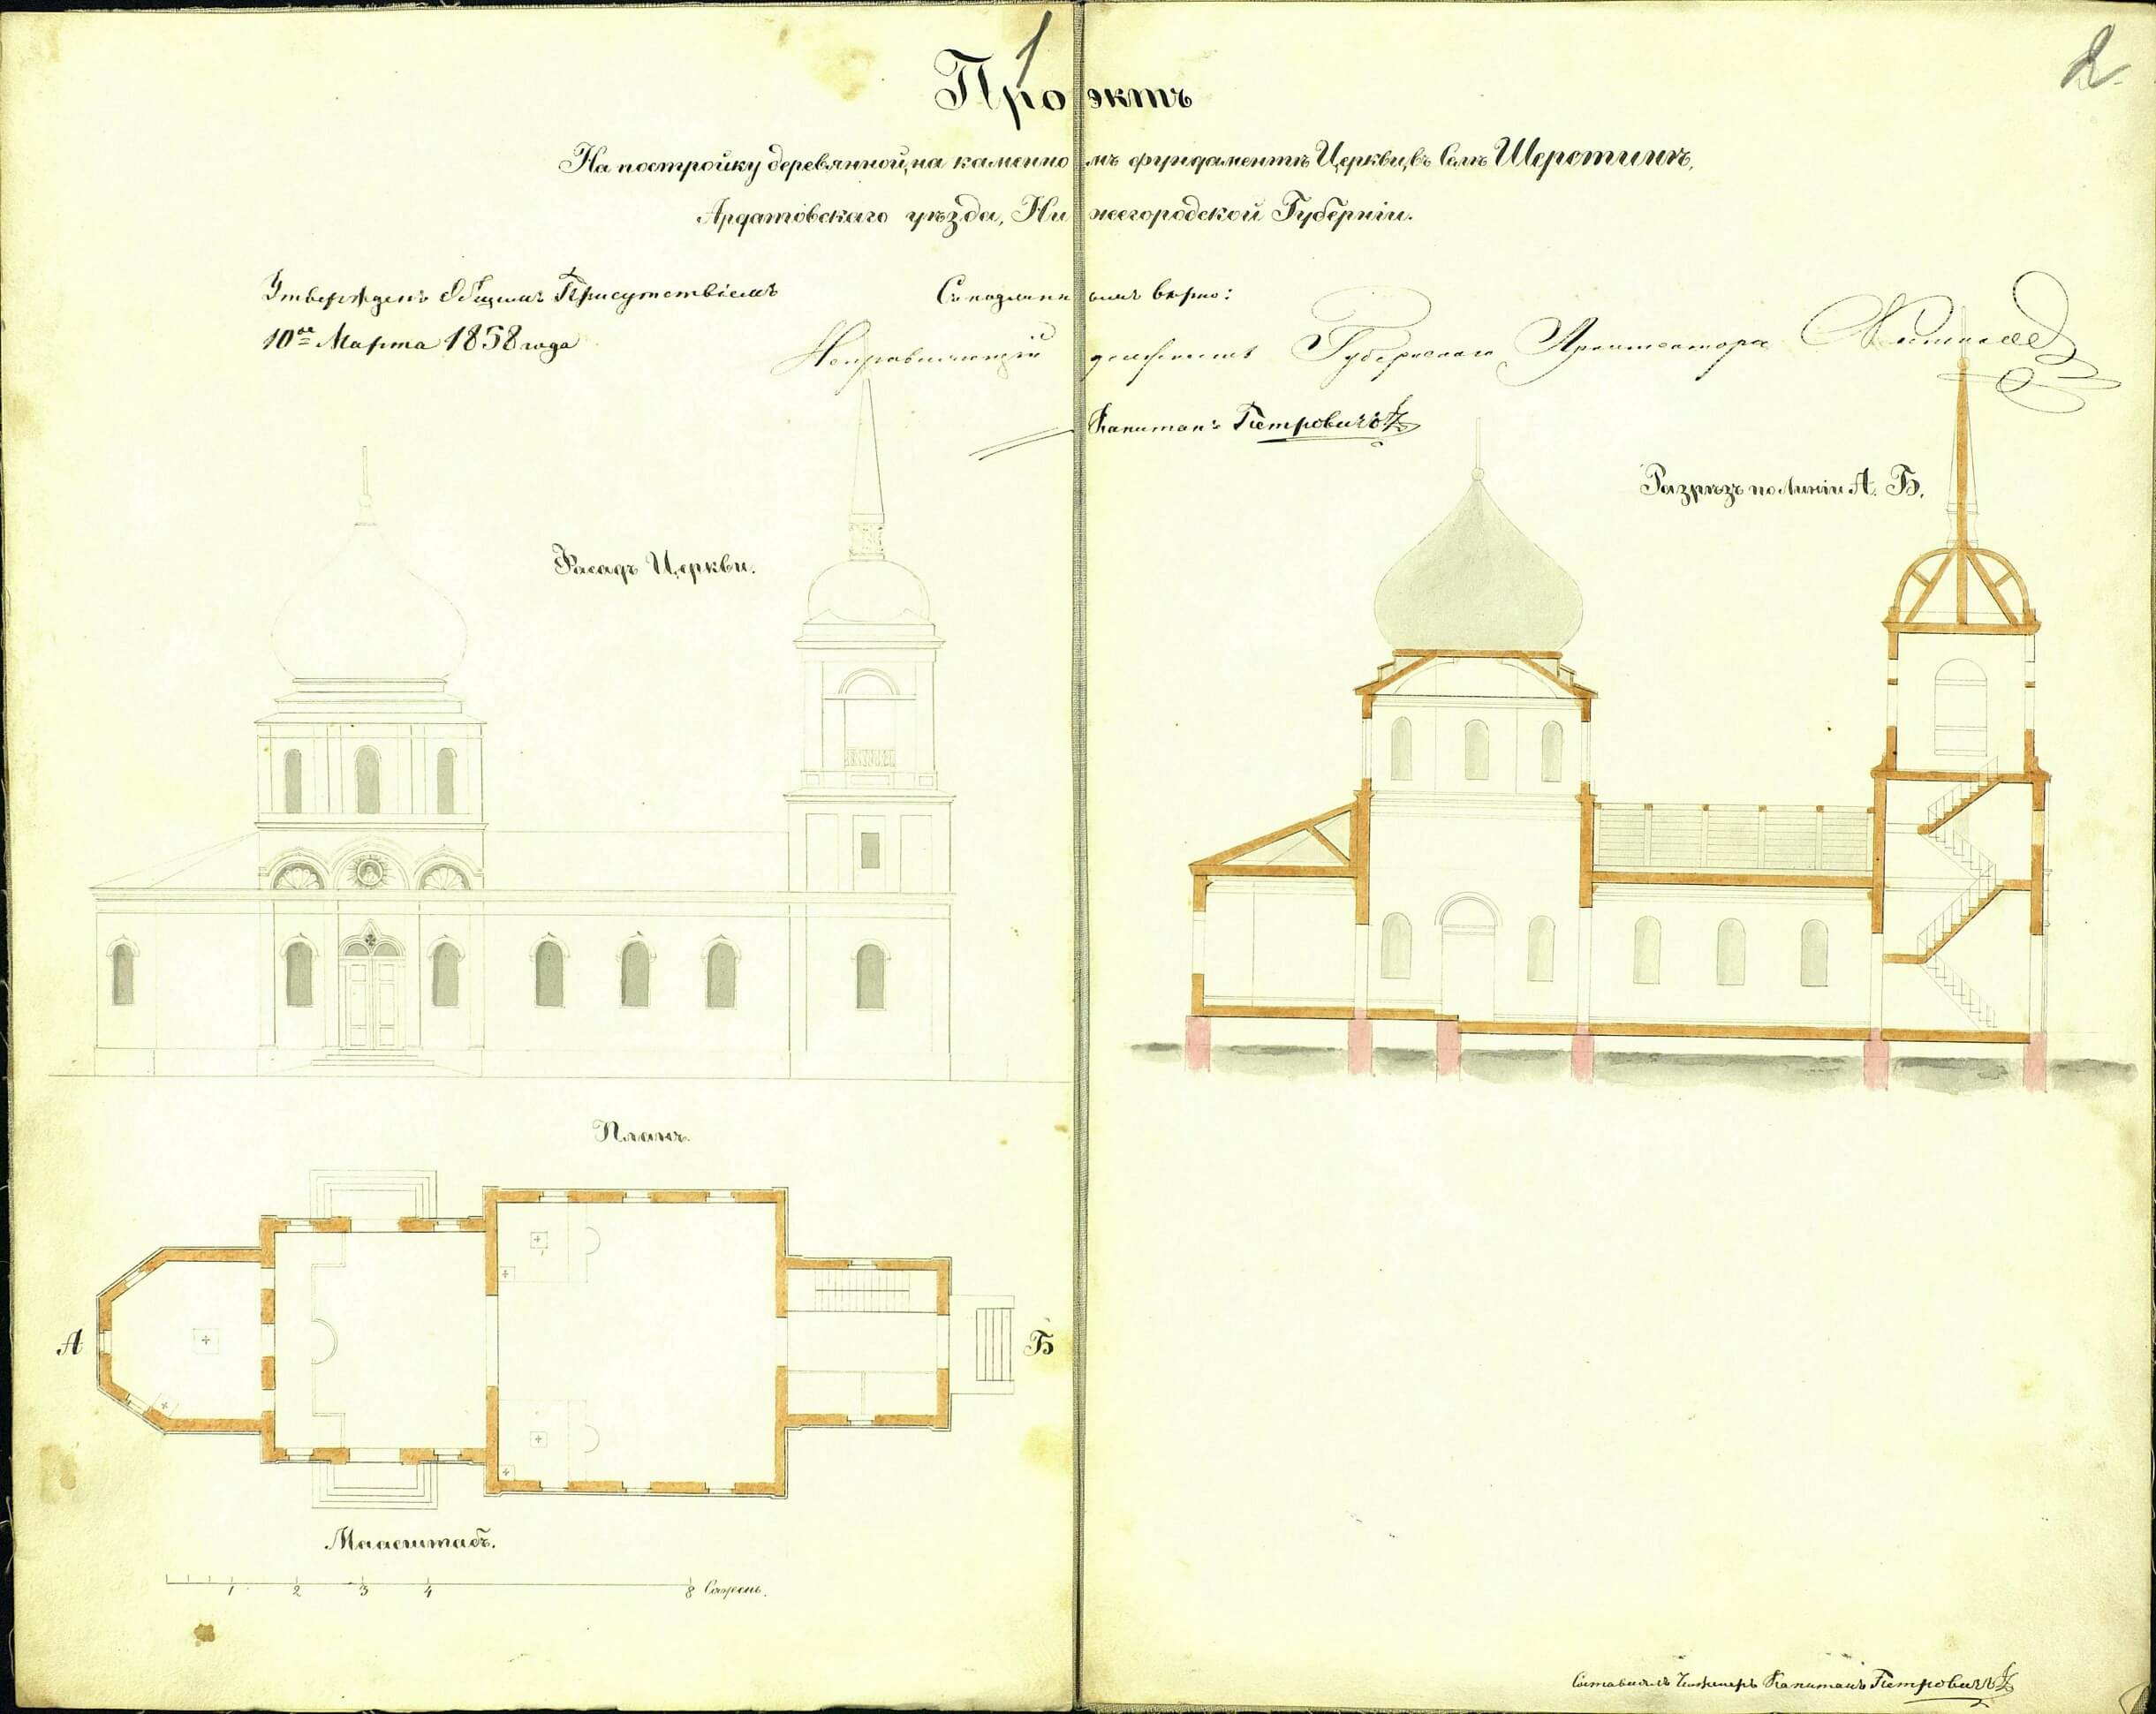 1
2
Проэктъ
На постройку деревянной, на каменномъ фундаментѣ Церкви, въ Селѣ Шерстинѣ,
Ардатовскаго уѣзда, Нижегородской Губерніи.
Утвержденъ Общимъ Присутствіемъ
10го Марта 1858 года
Съ подлиннымъ вѣрно:
Исправляющій должность Губернскаго Архитектора
Капитанъ Петровичъ
Фасадъ Церкви.
Разрѣзъ по Линіи А. Б.
Планъ.
А
Б
Маасштабъ.
1 2 3 4 8 Сажень.
Составилъ Инженеръ Капитанъ Петровичъ